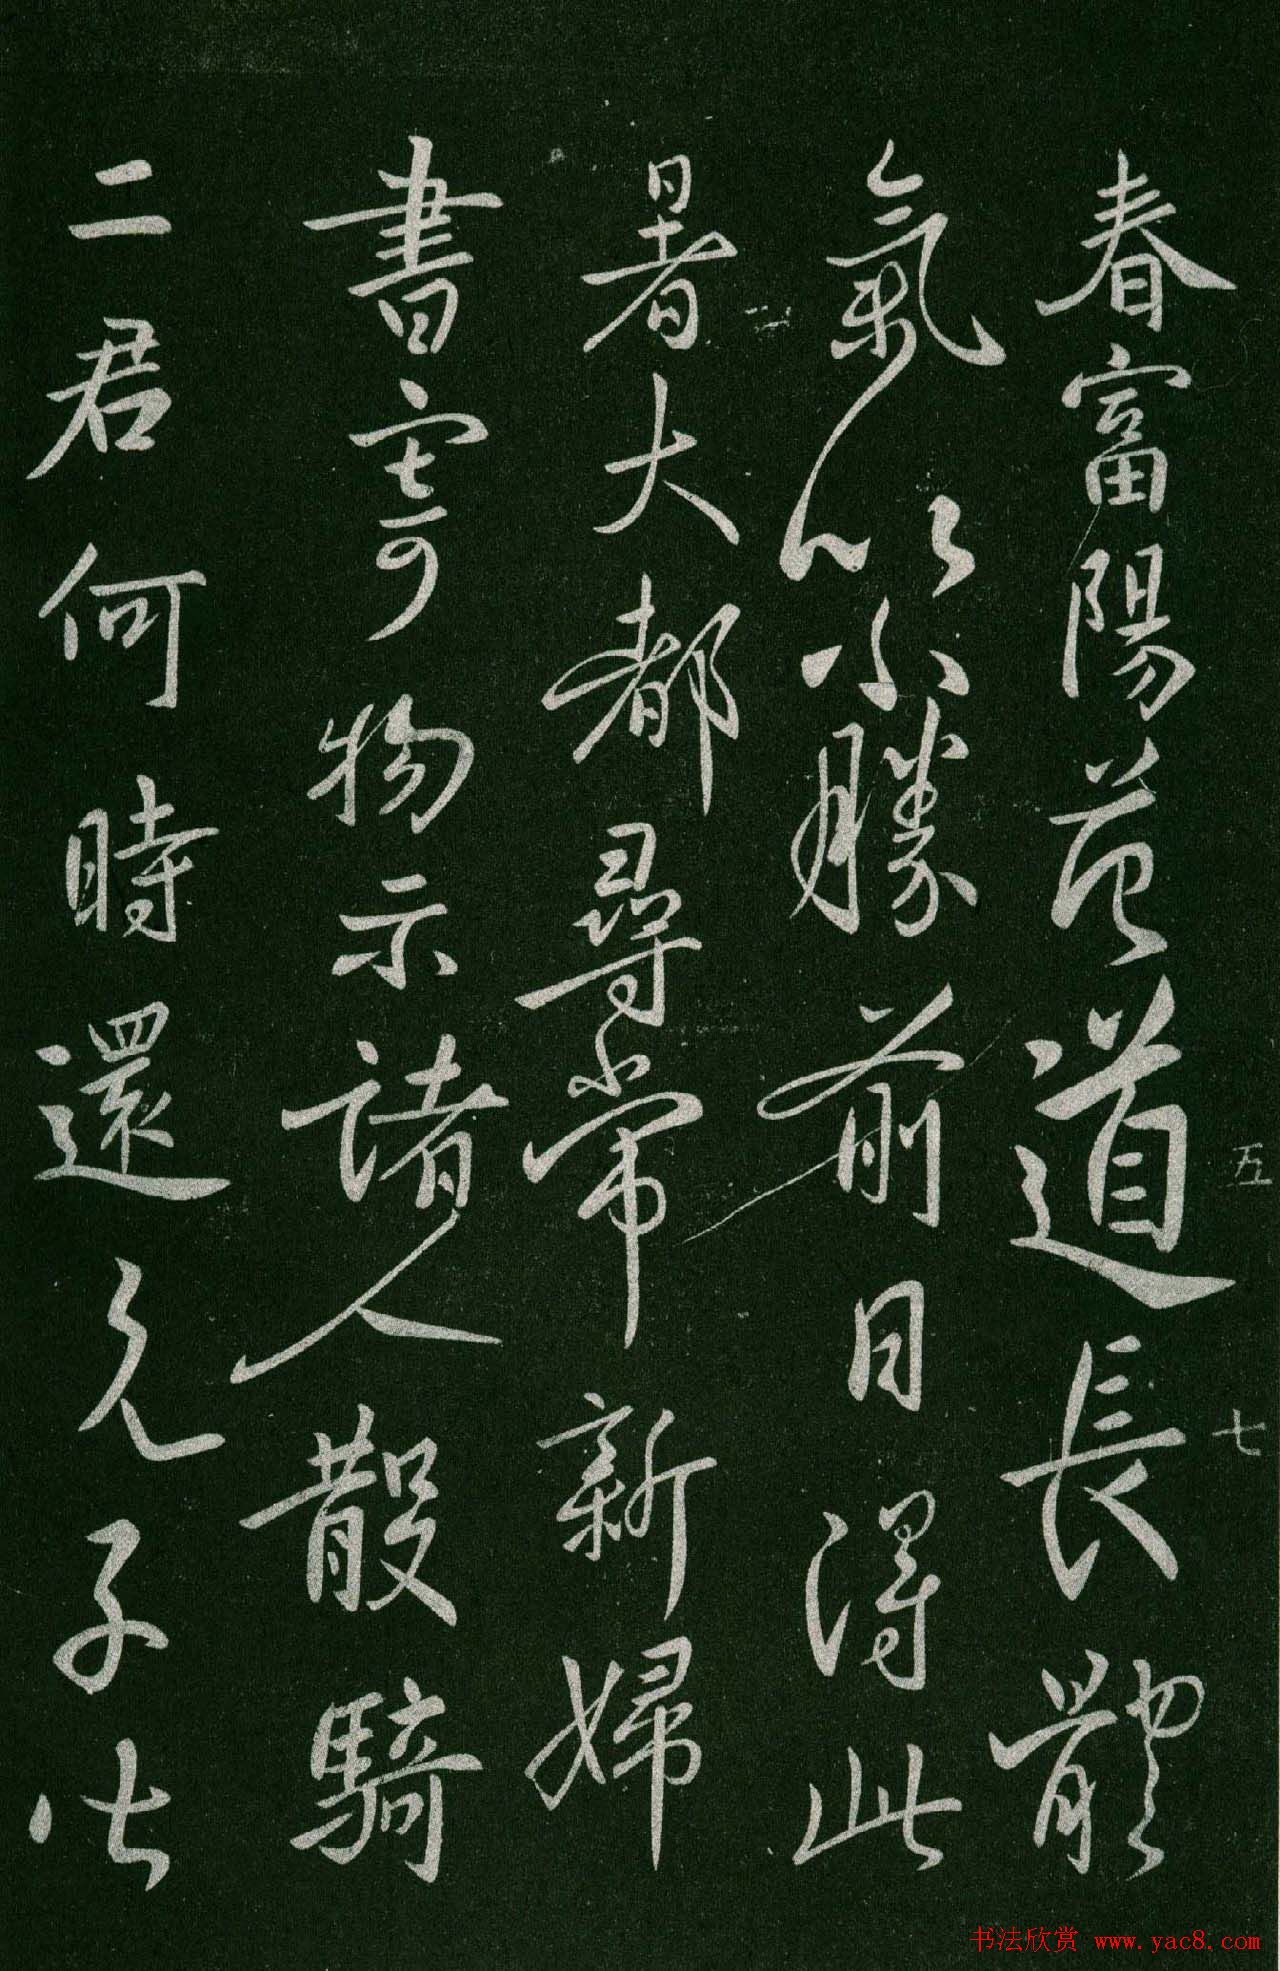 春富陽范道長體
氣以不勝前日得此
暑大都尋常新婦
書寄物示諸人散騎
二君何時還兄子比
五
七
二
书法欣赏 www.yac8.com